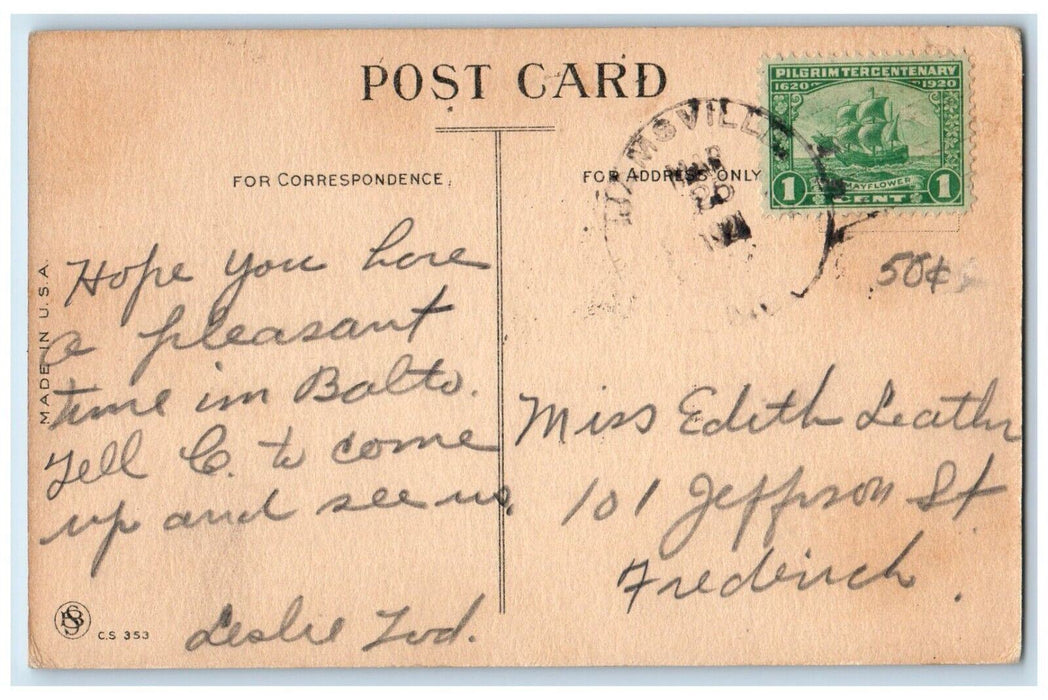 POST CARD
PILGRIM TERCENTENARY
1620 1920
MAYFLOWER
1 CENT 1
MAR
FOR CORRESPONDENCE.
FOR ADDRESS ONLY
50¢
Hope you have
a pleasant
time in Balto.
Tell C. to come
up and see us.
Leslie
Miss Edith
101 Jeffrson St
Fredirich.
MADE IN U.S.A.
C.S 353